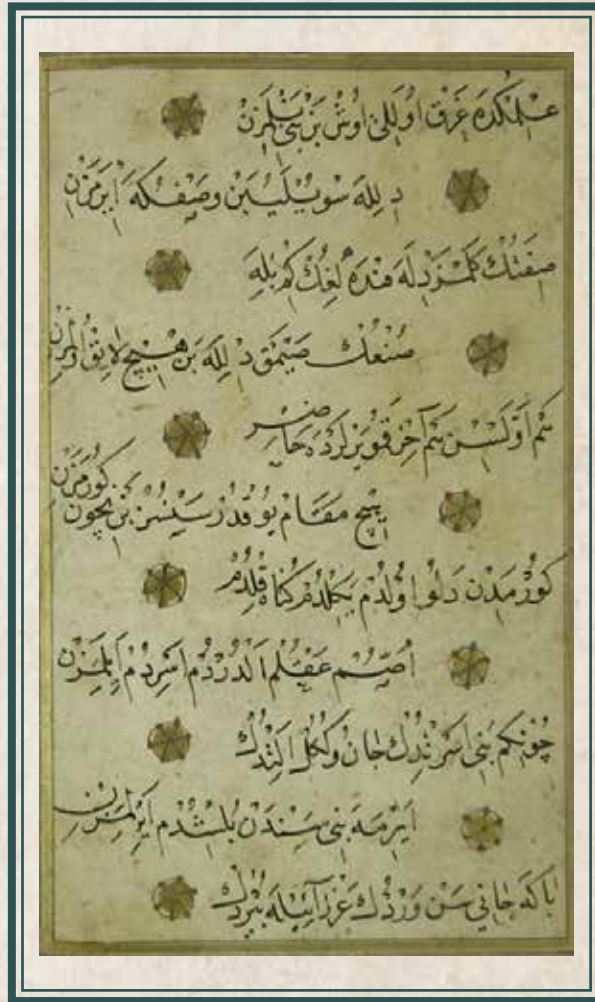 علمنكده غرق اوللى اوش بن بنى بلمزن
دلله سويليبن وصفكه ايرمزن
صفتك كلمز دله قنده لغك كم بله
صنعك صيمق دلله بن هيچ لايق اولمزن
هم اولسن هم آخر قو يرلرده حاضر
هيچ مقام يوقدر سينسز بن نچون كورمزن
كورمدن دلو اولدم يكلدم كناه قلدم
اصم عقلم الدردم اسردم ايلمزن
چونكم بنى اسرتدك جان وككل التدك
ايرمه بنى سندن بلشدم ايرلمزن
باكه جانى سن وردك عزرآئيله بيردك